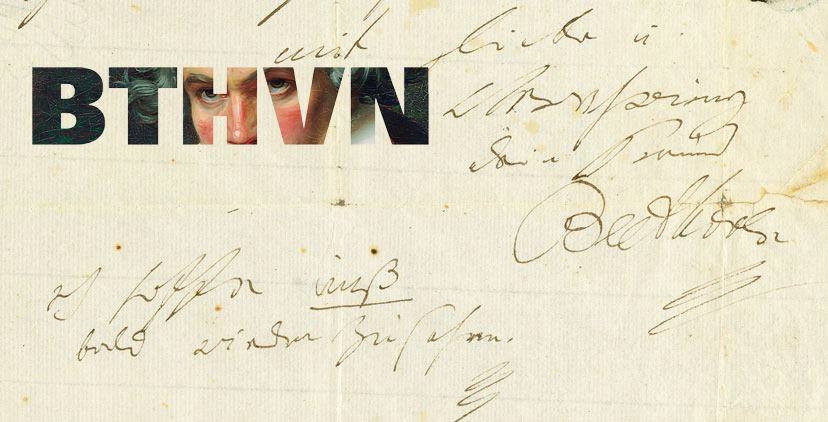 BTHVN
mit Liebe u.
Verehrung
dein Freund
Beethoven
ich hoffe unß
bald wieder zu sehen.